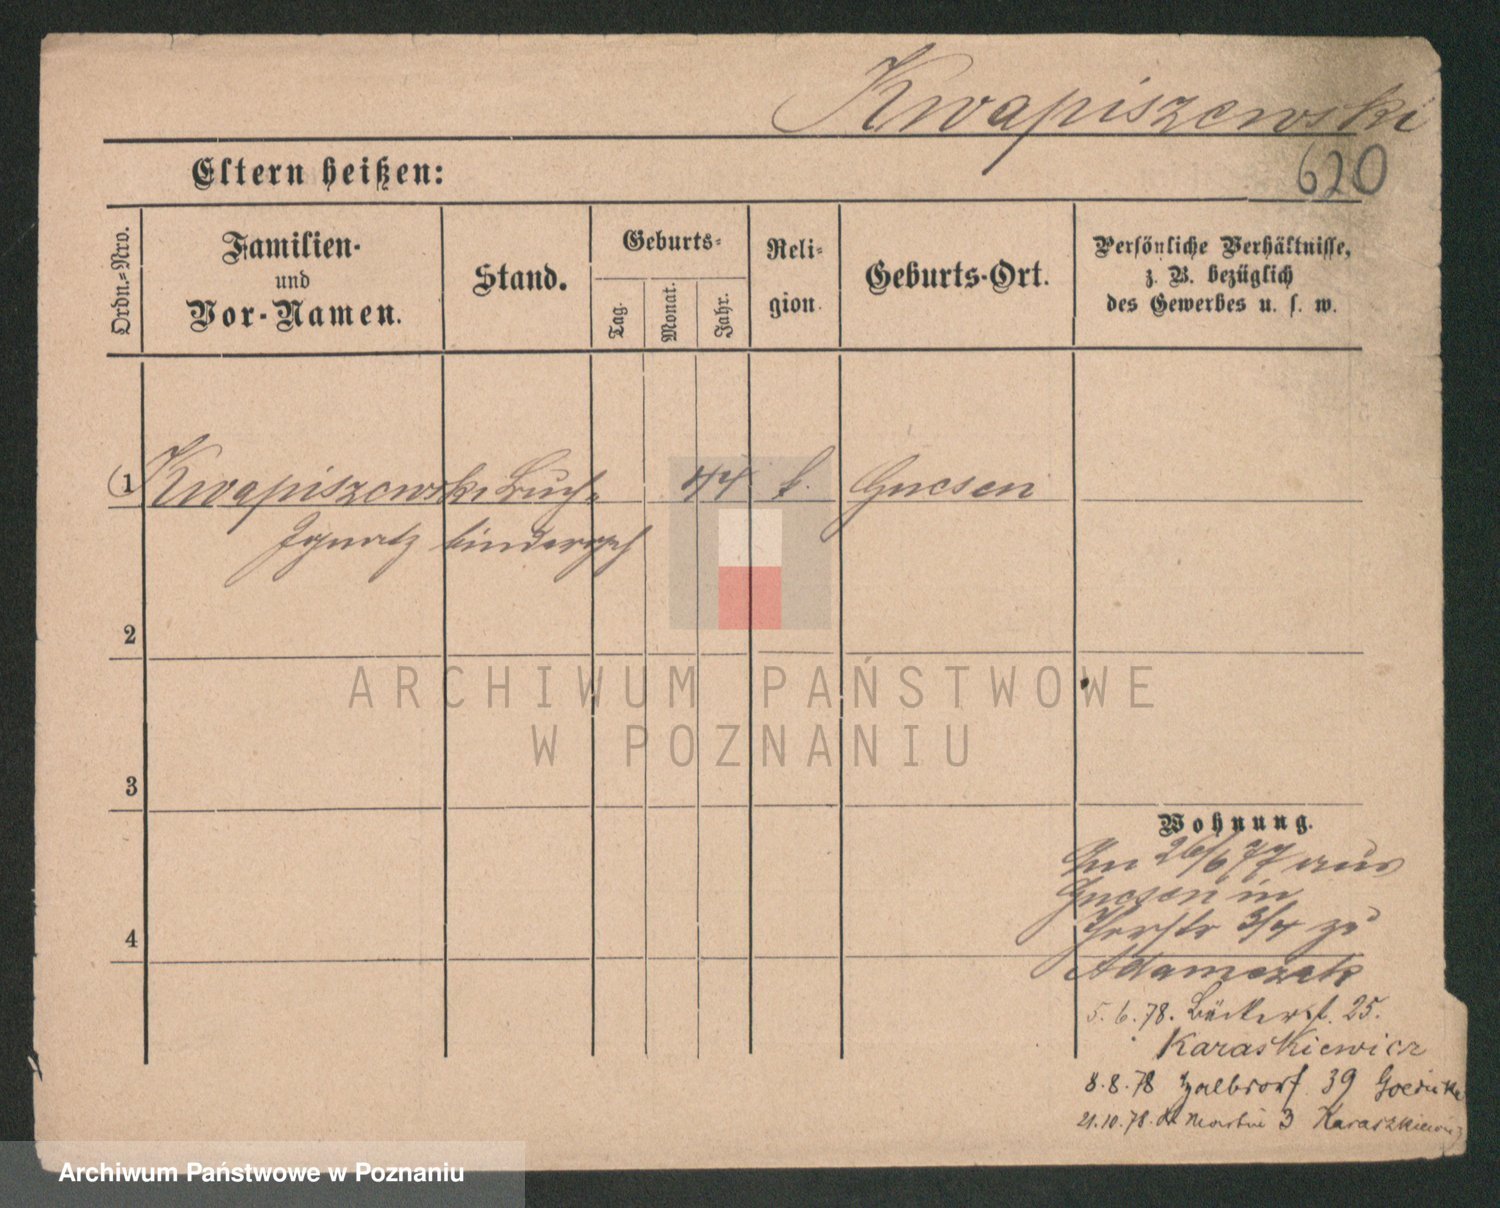 Kwapiszewski
620
Eltern heißen:
Ordn.-Nro.
Familien-
und
Vor-Namen.
Stand.
Geburts-
Tag.
Monat.
Jahr.
Reli-
gion.
Geburts-Ort.
Persönliche Verhältnisse,
z. B. bezüglich
des Gewerbes u. s. w.
1 Kwapiszewski Buch- 44 k. Gnesen
Ignatz bindergeh
2
3
4
ARCHIWUM PAŃSTWOWE
W POZNANIU
Wohnung.
Am 26/6 77 aus
Gnesen in
3/4 zu
Adamczak
5.6.78. Bäckerst. 25.
Karaskiewicz
8.8.78 Halbdorf 39
21.10.78. St Martin 3 Karaszkiewicz
Archiwum Państwowe w Poznaniu